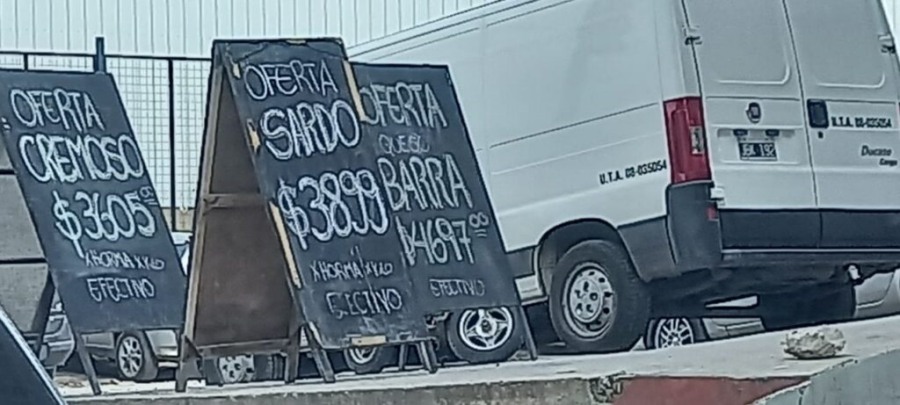 OFERTA
CREMOSO
$3605 00
X HORMA X KG
EFECTIVO
OFERTA
SARDO
$3899
X HORMA X KG
OFERTA
QUESO
BARRA
$4697 00
EFECTIVO
U.T.A. 08-035054
U.T.A. 08-035054
Ducato
Cargo